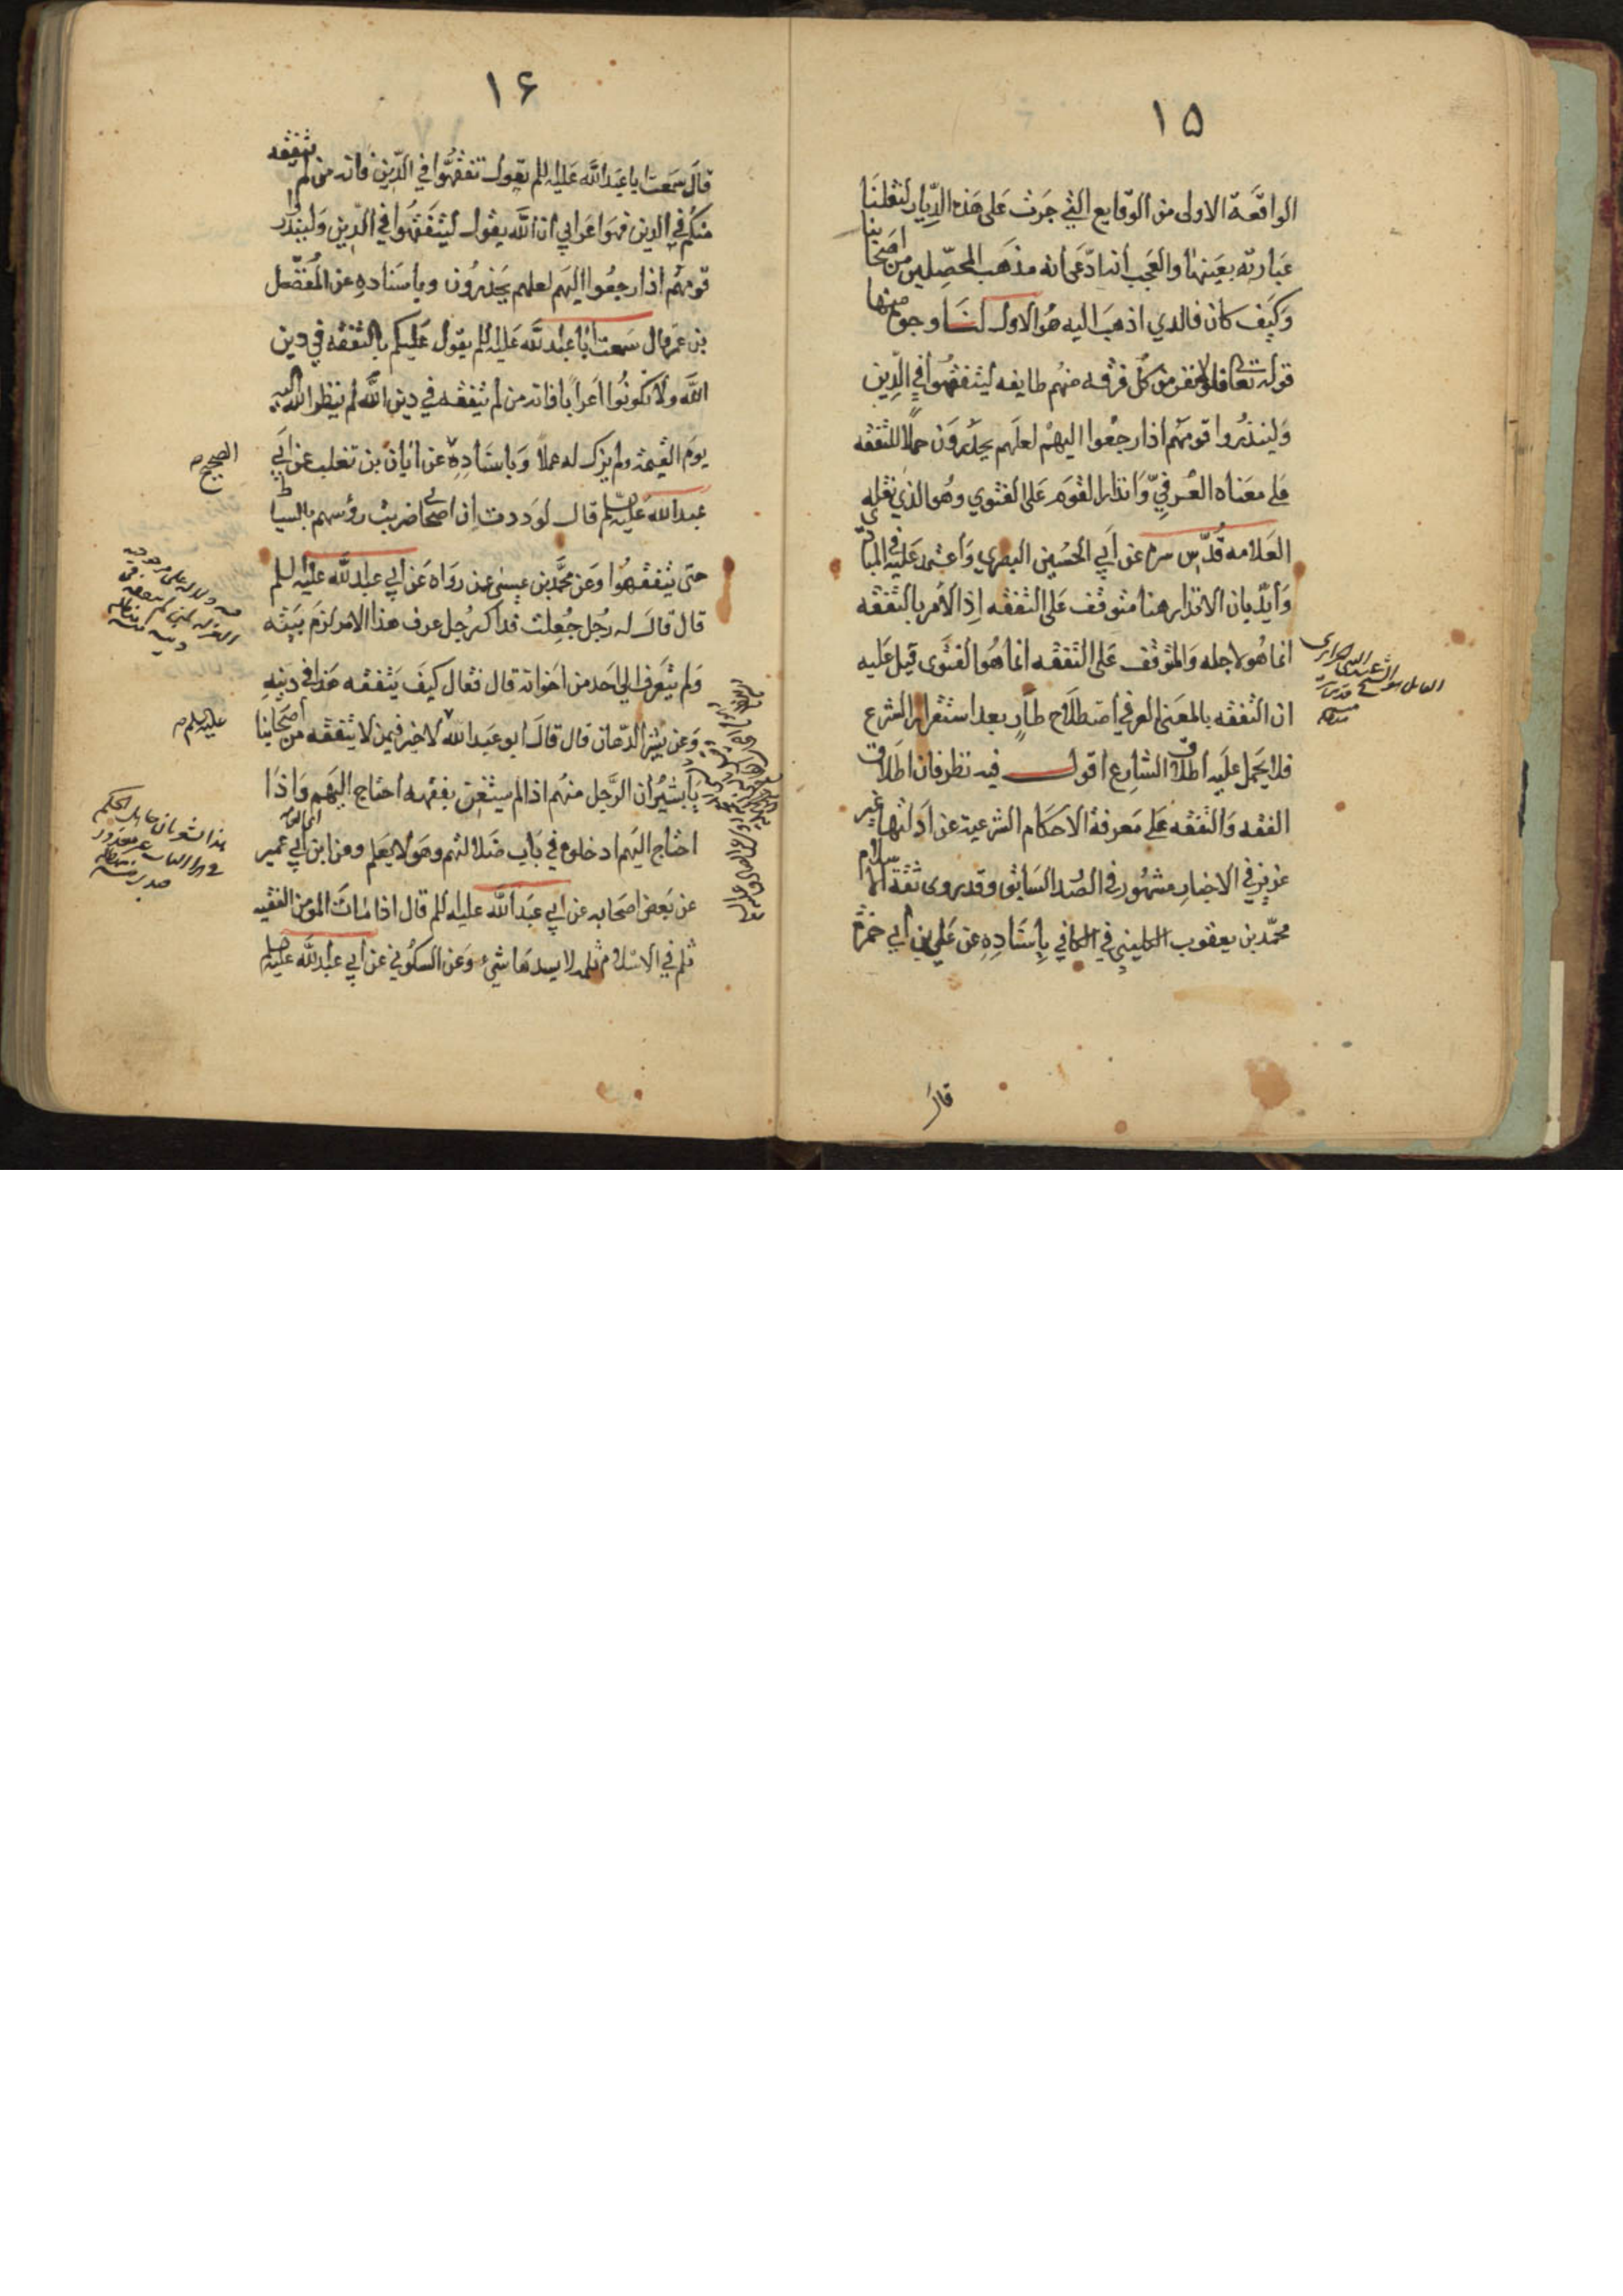 ١٥
الواقعة الاولى من الوقايع التي جرت على هذه الديار لنقلنا
عبارته بعينها والعجب انه ادعى انه مذهب المحصلين من اصحابنا
وكيف كان فالذي اذهب اليه هو الاول لنا وجوه منها
قوله تعالى فلولا نفر من كل فرقه منهم طايفه ليتفقهوا في الدين
ولينذروا قومهم اذا رجعوا اليهم لعلهم يحذرون حملا للتفقه
على معناه العرفي وانذار القوم على الفتوي وهو الذي نقله
العلامه قدس سره عن ابي الحسين البصري واعتمد عليه في المبادي
وايد بان الانذار هنا متوقف على التفقه اذ الامر بالتفقه
انما هو لاجله والمتوقف على التفقه انما هو الفتوى قيل عليه
ان التفقه بالمعنى العرفي اصطلاح طار بعد استقرار الشرع
فلا يحمل عليه اطلاق الشارع اقول فيه نظر فان اطلاق
الفقه والتفقه على معرفة الاحكام الشرعية عن ادلتها غير
عزيز في الاخبار مشهور في الصدر السابق وقد روى ثقة الاسلام
محمد بن يعقوب الكليني في الكافي باسناده عن علي بن ابي حمزة
قال
١۶
قال سمعت ابا عبد الله عليه السلم يقول تفقهوا في الدين فانه من لم يتفقه
منكم في الدين فهو اعرابي ان الله يقول ليتفقهوا في الدين ولينذروا
قومهم اذا رجعوا اليهم لعلهم يحذرون وباسناده عن المفضل
بن عمر قال سمعت ابا عبد الله عليه السلم يقول عليكم بالتفقه في دين
الله ولا تكونوا اعرابا فانه من لم يتفقه في دين الله لم ينظر الله اليه
يوم القيمة ولم يزك له عملا وباسناده عن ابان بن تغلب عن ابي
الصحيح
عبد الله عليه السلم قال لوددت ان اصحابي ضربت رؤسهم بالسياط
حتى يتفقهوا وعن محمد بن عيسى عمن رواه عن ابي عبد الله عليه السلم
قال قال له رجل جعلت فداك رجل عرف هذا الامر لزم بيته
ولم يتعرف الى احد من اخوانه قال فقال كيف يتفقه هذا في دينه
وعن بشير الدهان قال قال ابو عبد الله لا خير فيمن لا يتفقه من اصحابنا
عليه السلم
يا بشير ان الرجل منهم اذا لم يستغن بفقهه احتاج اليهم واذا
احتاج اليهم ادخلوه في باب ضلالتهم وهو لا يعلم وعن ابن ابي عمير
عن بعض اصحابه عن ابي عبد الله عليه السلم قال اذا مات المومن الفقيه
ثلم في الاسلام ثلمه لا يسدها شيء وعن السكوني عن ابي عبد الله عليه السلم